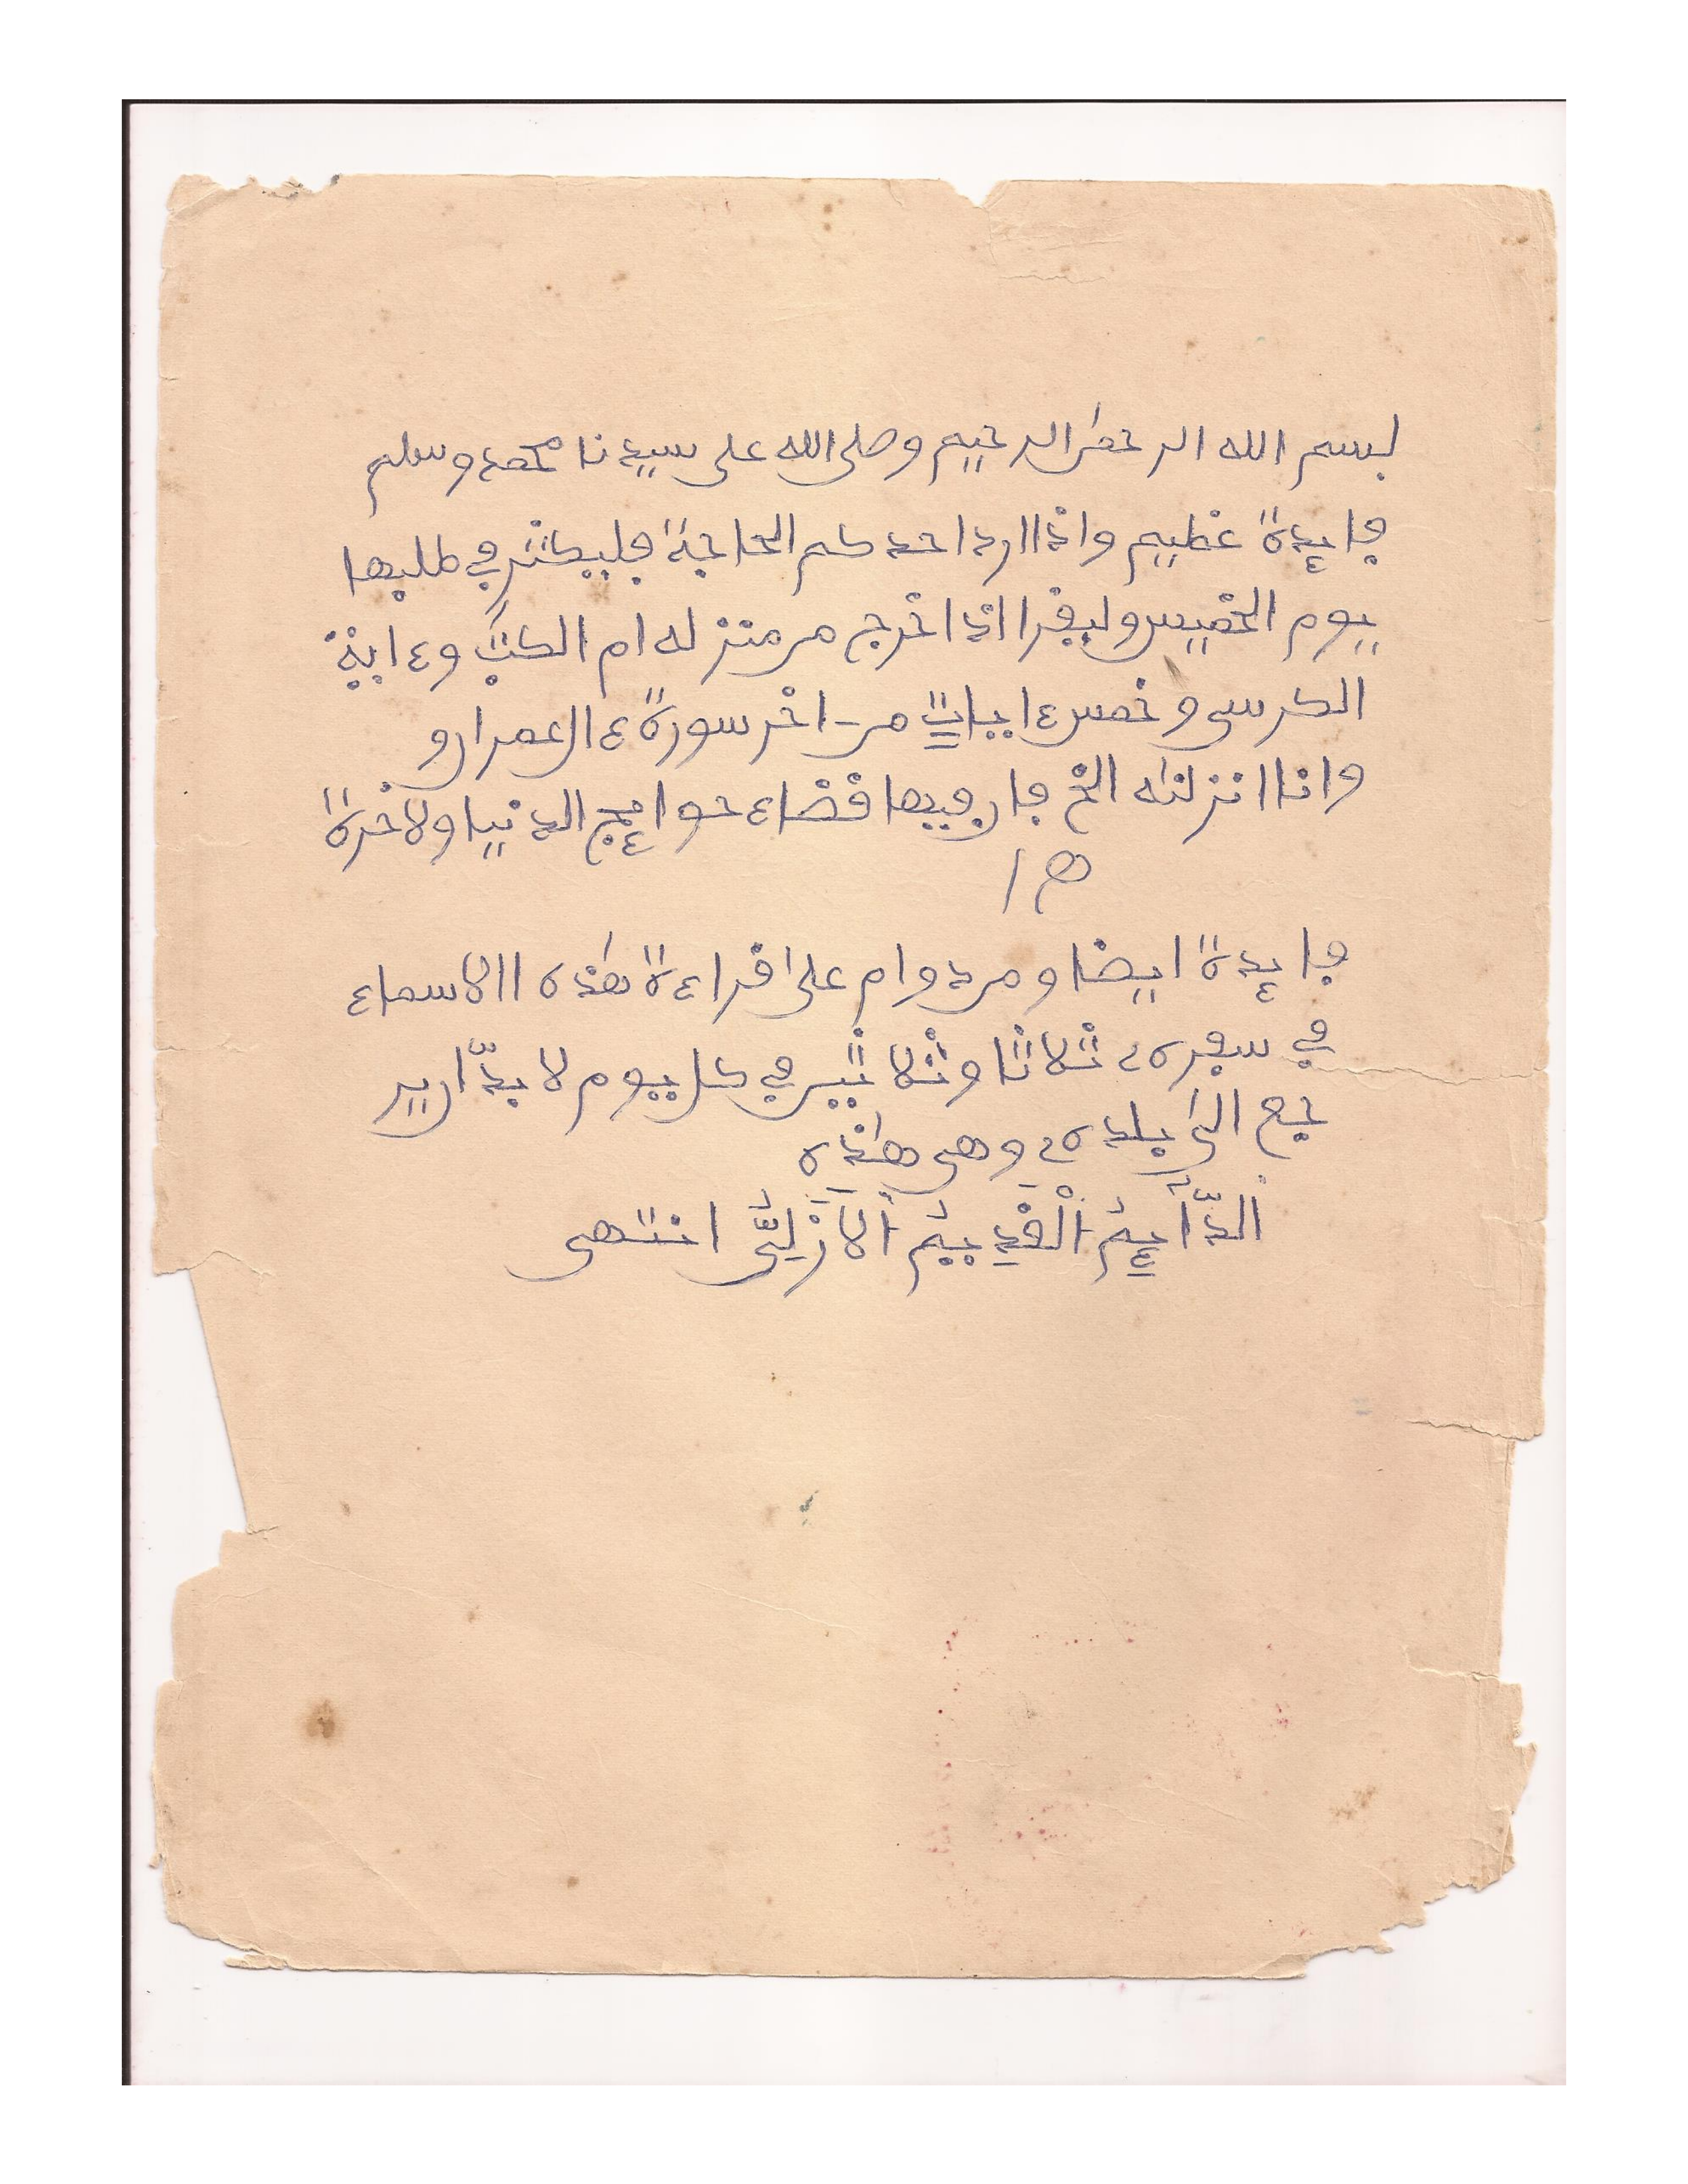 بسم الله الرحمن الرحيم وصلى الله على سيدنا محمد وسلم
فايدة عظيم واذا ارد احدكم الحاجة فليبكثر في طلبها
يوم الخميس وليقرا اذا خرج من منزله ام الكتب وءاية
الكرسي وخمس ءايات من اخر سورة ءال عمران و
وانا انزلنه الخ فان فيها قضاء حوايج الدنيا ولاخرة
اه
فايدة ايضا ومن دوام على اقراءة هذه الاسماء
في سفره ثلاثا وثلاثين في كل يوم لا بدّ ان ير
جع الى بلده وهى هذه
الدَّآيِمُ الْقَدِيمُ الَازَلِيُّ انتهى